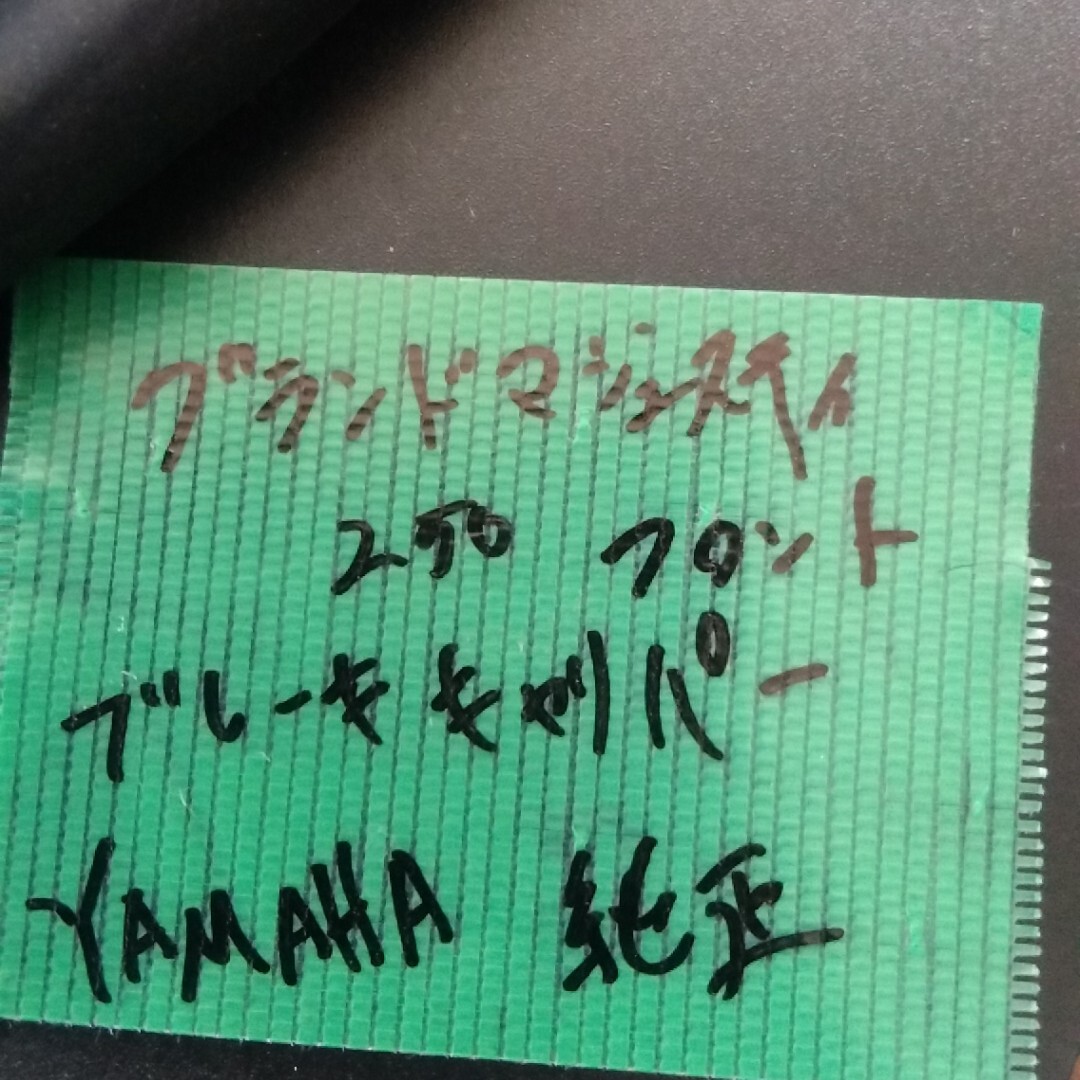 グランドマジェスティ
250 フロント
ブレーキキャリパー
YAMAHA 純正